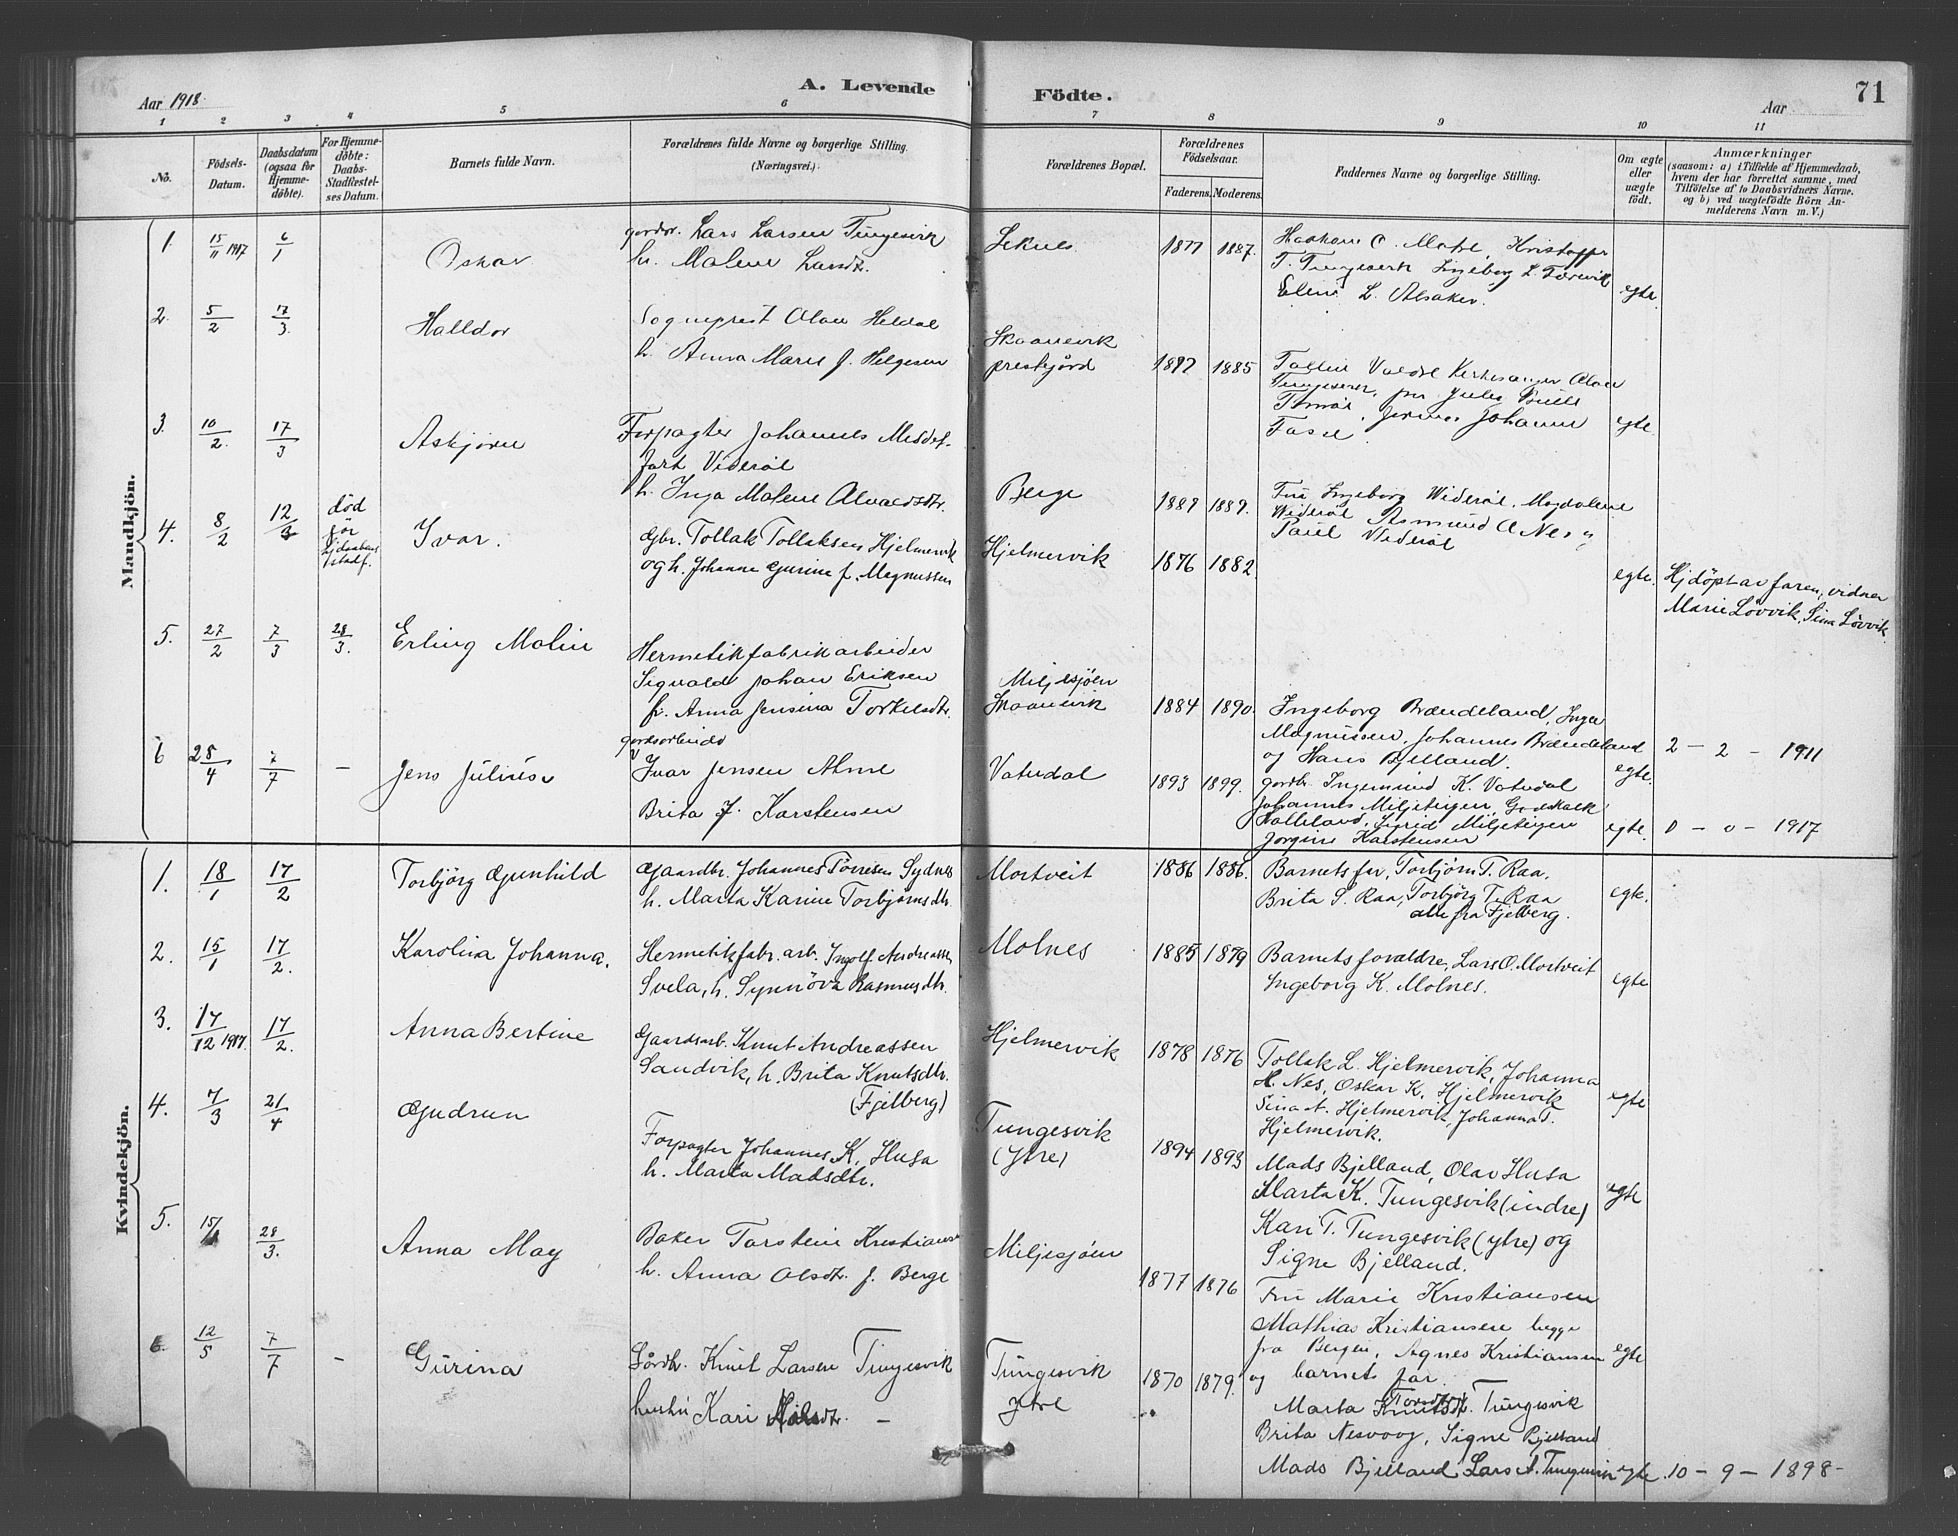 Aar 1918.
A. Levende
Födte.
Aar
71
1 2 3 4 5 6 7 8 9 10 11
No.
Födsels-
Datum.
Daabsdatum
(ogsaa for
Hjemme-
döbte).
For Hjemme-
döbte:
Daabs-
Stadfæstel-
ses Datum.
Barnets fulde Navn.
Forældrenes fulde Navne og borgerlige Stilling.
(Næringsvei.)
Forældrenes Bopæl.
Forældrenes
Födselsaar.
Faderens. Moderens.
Faddernes Navne og borgerlige Stilling.
Om ægte
eller
uægte
födt.
Anmærkninger
(saasom: a) i Tilfælde af Hjemmedaab,
hvem der har forrettet samme, med
Tilföielse af to Daabsvidners Navne.
og b) ved uægtefödte Börn An-
melderens Navn m. V.)
Mandkjön.
1. 15/11 1917 6/1
Oskar
gardbr. Lars Larsen Tungesvik
h. Malene Larsdtr.
Leknes
1877 1887.
Haakon O. Matre, Kristoffer
T. Tungesvik Ingeborg L.
Eleni L. Alsaker.
egte
2. 5/2 17/3
Halldor
Sogneprest Olav Heldal
h. Anna Marie f. Helgesen
Skaanevik
prestgjörd
1885
Kirkesanger Olav
Johanne
egte.
3. 10/2. 17/3
Askjörn
Forpagter Johannes
Videröl
h. Inga Malene Alvaldsdtr.
Berge
1887 1889.
Fru Ingeborg Wideröl, Magdalene
Wideröl Asmund O. Nes
Paul Videröl
4. 8/2 12/3
död
för
stadf.
Ivar.
Gbr. Tollak Tollaksen Hjelmervik
og h. Johanne Gurine f. Magnussen
Hjelmervik
1876 1882.
egte.
Hjdöpt av faren, vidner
Marie Lövvik, Sina Lövvik
5. 27/2 7/3 28/3.
Erling Malin
Hermetikfabrikarbeider
Sigvald Johan Eriksen
h. Anna Jensina Torkelsdtr.
Miljesjöen
Skaanevik
1884 1890.
Ingeborg Brændeland, Inga
Magnussen, Johannes Brændeland
og Hans Bjelland.
egte.
2 - 2 - 1911
6 28/4 7/7 -
Jens Julius
gardsarbeider
Ivar Jensen Alme
Brita f. Karstensen
Vatndal
1893 1899.
gardbr. Ingemund K. Vatndal
Johannes Miljeteigen, Godskalk
Halleland, Sigrid Miljeteigen
Jorgine Karstensen
egte.
0 - 0 - 1917
Kvindekjön.
1. 18/1 17/2
Torbjörg Gunhild
Gaardbr. Johannes Törresen Sydnes
h. Marta Karine Torbjörnsdtr.
Mortveit
1886 1886.
Barnets far, Torbjörn T. Raa,
Brita S. Raa, Torbjörg T. Raa
alle fra Fjelberg.
egte.
2. 15/1 17/2.
Karolina Johanna.
Hermetikfabr. arb. Ingolf Andreassen
Svela, h. Synnöva Rasmusdtr.
Molnes
1885 1879
Barnets forældre, Lars O. Mortveit
Ingeborg K. Molnes.
egte
3. 17/12 1917. 17/2.
Anna Bertine
Gaardsarb. Knut Andreassen
Sandvik, h. Brita Knutsdtr.
(Fjelberg)
Hjelmervik
1878 1876
Tollak L. Hjelmervik, Johanna
H. Nes, Oskar K. Hjelmervik
Sina A. Hjelmervik, Johanna T.
Hjelmervik.
egte
4. 7/3 21/4
Gudrun
Forpagter Johannes K. Husa
h. Marta Madsdtr.
Tungesvik
(Ytre)
1894 1893
Mads Bjelland, Olav Husa
Marta K. Tungesvik (indre)
Kari T. Tungesvik (ytre) og
Signe Bjelland.
egte
5. 15/ 28/3.
Anna May
Baker Torstein Kristiansen
h. Anna Olsdtr. f. Berge
Miljesjöen
1877 1876
Fru Marie Kristiansen
Mathias Kristiansen begge
fra Bergen, Agnes Kristiansen
og barnets far.
egte
6. 12/5 7/7 -
Gurina
Gårdbr. Knut Larsen Tungesvik
hustru Kari Nilsdtr. -
Tungesvik
ytre
1870 1879.
Marta Torsdtr. Tungesvik
Brita Nesvoog, Signe Bjelland
Mads Bjelland Lars A. Tungesvik
egte.
10 - 9 - 1898 -